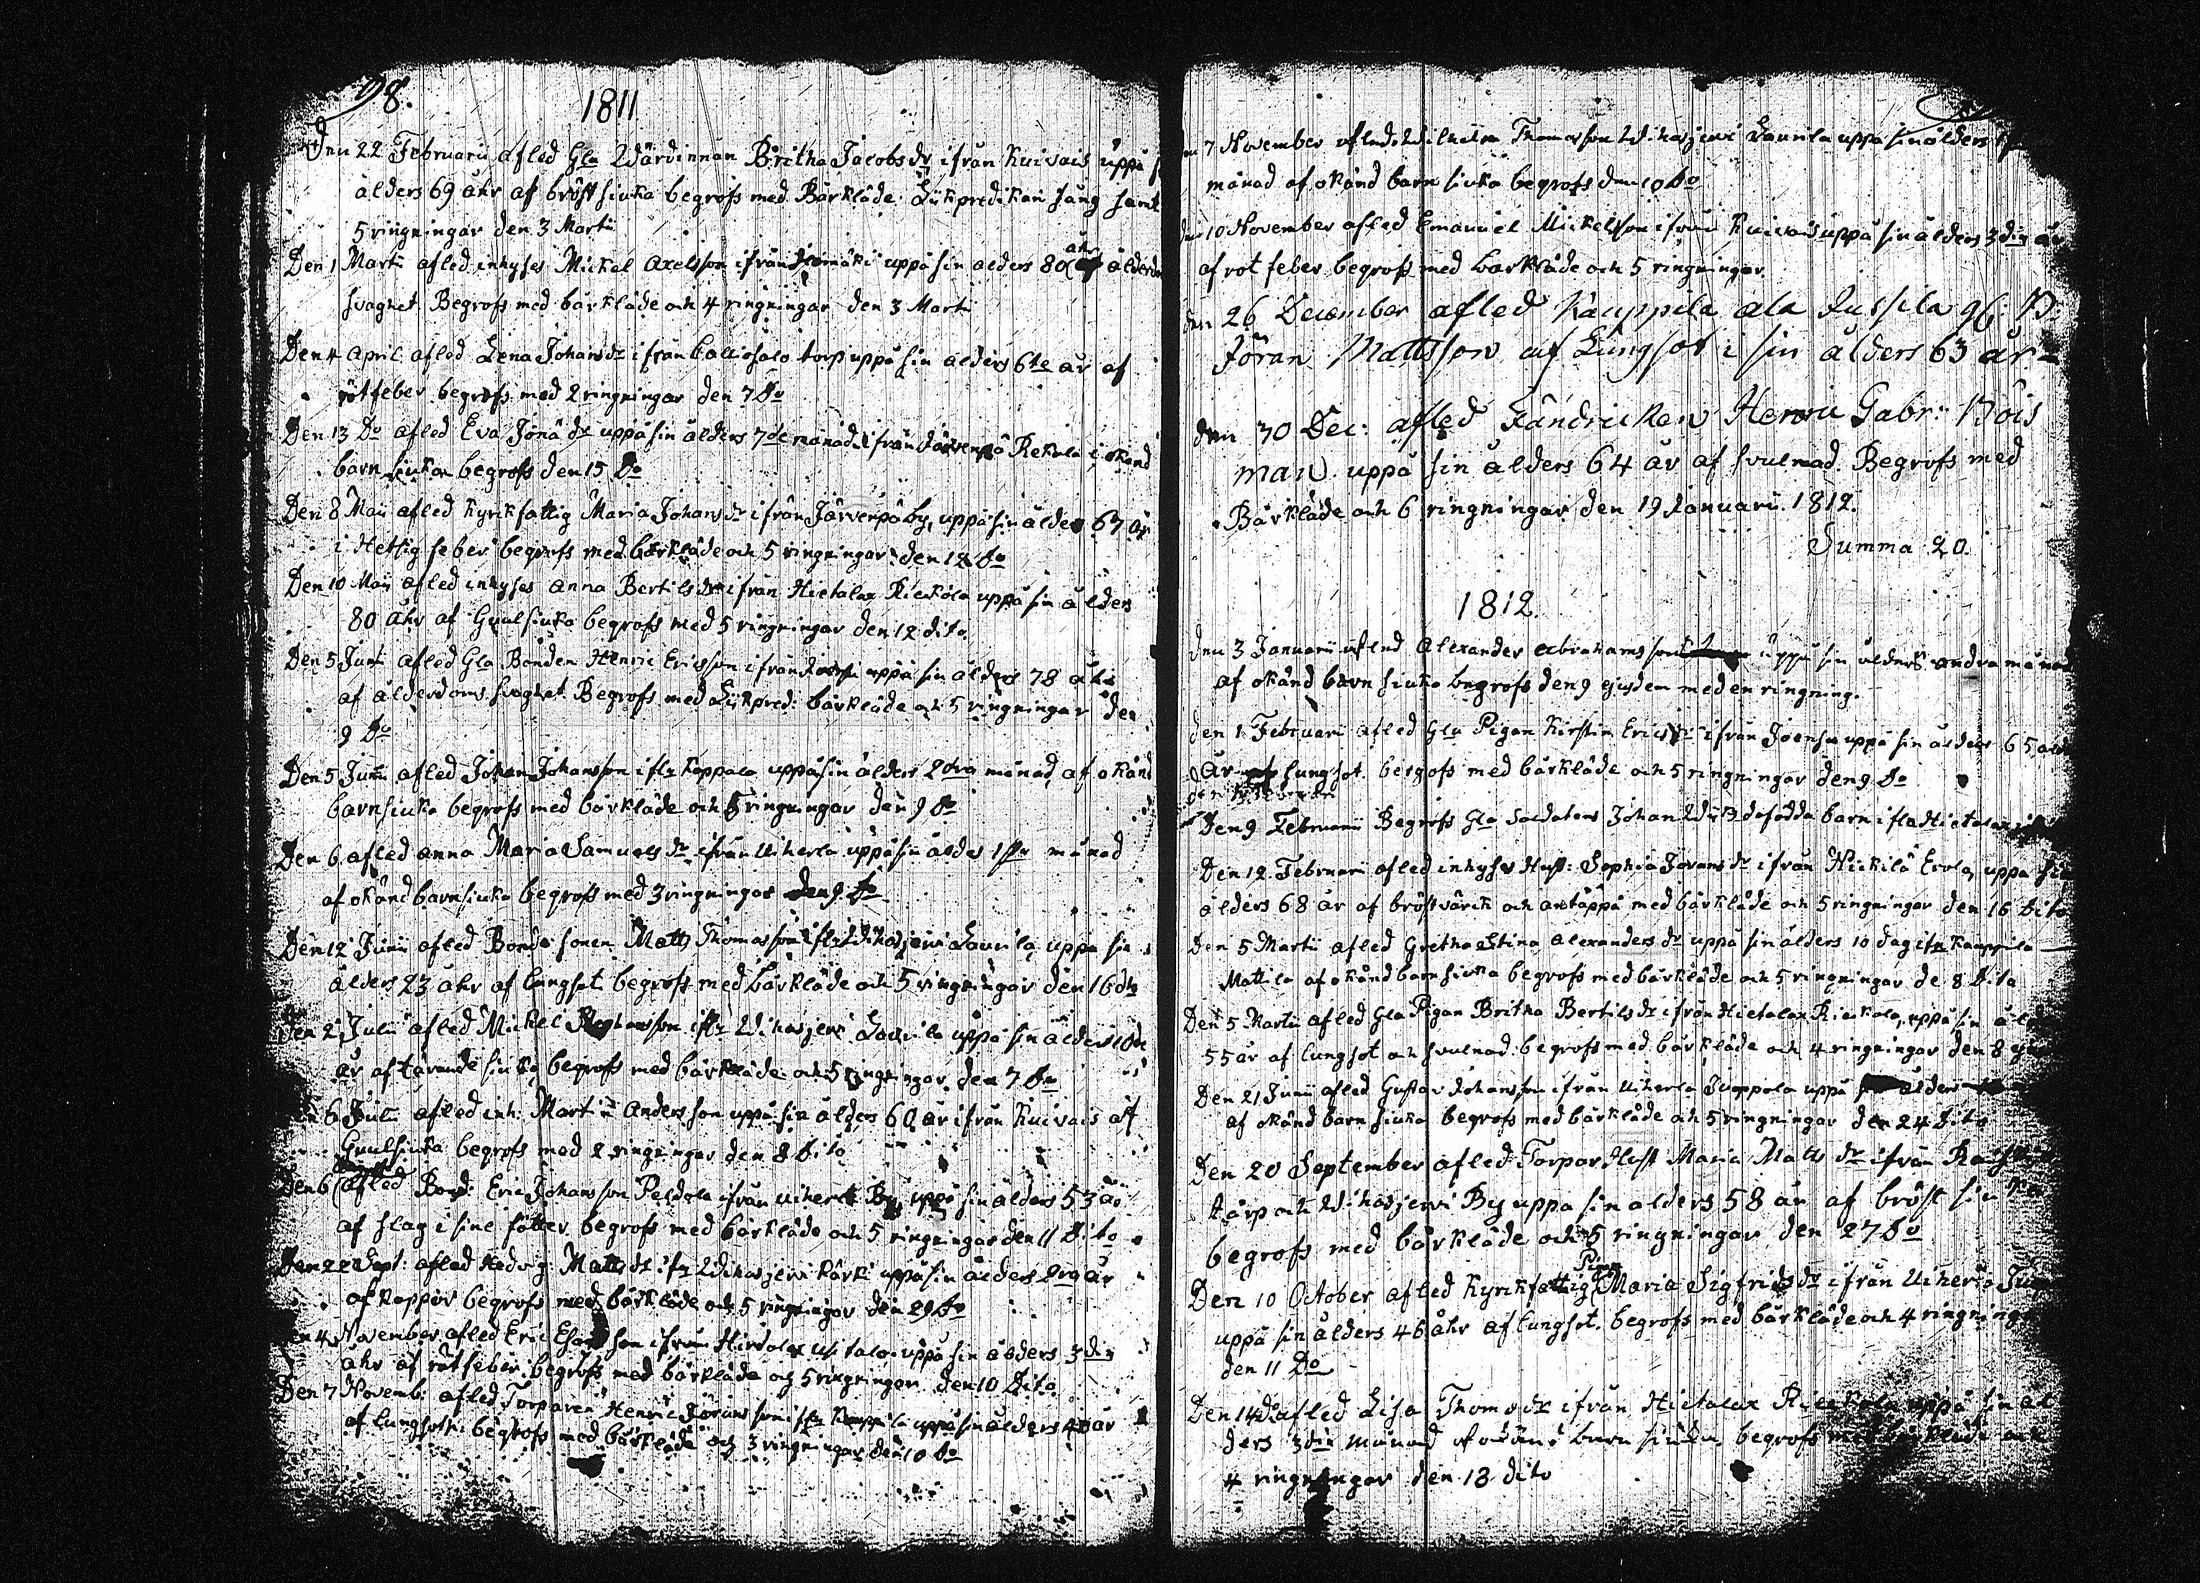 98.
1811
Den 22 Februarii afled Gla Wärdinnan Britha Jacobs dr ifrån Kuivais uppå
ålders 69 åhr af bröst siuka begrofs med Bårkläde Likpredikan sång samt
5 ringningar den 3 Martii
Den 1 Martii afled inhyses Mickel Axelsson ifrån uppå sin ålders 80 åhr ålderdoms
svaghet Begrofs med bårkläde och 4 ringningar den 3 Martii
Den 4 April afled Lena Johans dr ifrån torp uppå sin ålders 6te år af
rötfeber begrofs med 2 ringningar den 7 Do
Den 13 Do afled Eva Jona dr uppå sin ålders 7de månad ifrån Järvenpä Rekola i okänd
barnsiukan begrofs den 15 Do
Den 8 Maii afled Kyrkfattig Maria Johans dr ifrån Järvenpä by, uppå sin ålders 67 år
i Hettig feber begrofs med bårkläde och 5 ringningar den 12 Do
Den 10 Maii afled inhyses Anna Bertils dr ifrån Hietalax Rieskola uppå sin ålders
80 åhr af Guulsiuka begrofs med 5 ringningar den 12 dito
Den 5 Junii afled Gla Bonden Henric Ericsson ifrån uppå sin ålders 78 åhr
af ålderdoms svaghet Begrofs med Likpred: bårkläde och 5 ringningar den
9 Do
Den 5 Junii afled Johan Johansson ifr Koppala uppå sin ålders 2dra månad af okänd
barnsiuka begrofs med bårkläde och 5 ringningar den 9 Do
Den 6 afled Anna Maria Samuels dr ifrån Uiherla uppå sin ålders 1sta månad
af okänd barnsiuka begrofs med 3 ringningar den 9 Do
Den 12 Junii afled Bonde sonen Matts Thomasson ifr Wihasjervi Laurila uppå sin
ålders 23 åhr af lungsot begrofs med bårkläde och 5 ringningar den 16 dito
Den 2 Julii afled Mickel ifr Wihasjervi Laurila uppå sin ålders 10de
år af tärande siuka begrofs med bårkläde och 5 ringningar den 7 Do
6 Julii afled inh: Martin Andersson uppå sin ålders 60 år ifrån Kuivais af
Guulsiuka begrofs med 2 ringningar den 8 Dito
Den 6 Augusti afled Bond: Eric Johansson Peldola ifrån Uiherla By uppå sin ålders 53 år
af slag i sine fötter begrofs med bårkläde och 5 ringningar den 11 Dito
Den 22 Sept: afled Hedvig Matts dr ifr Wihasjervi Kärki uppå sin ålders 2ra år
af Koppor begrofs med bårkläde och 5 ringningar den 29 Do
4 November afled Eric son ifrån Hirvola Uusitalo uppå sin ålders 3die
åhr af rötfeber begrofs med bårkläde och 5 ringningar den 10 Dito
Den 7 Novemb: afled Torparen Henric Jöransson ifr Kauppila uppå sin ålders 40 år
af lungsoth begrofs med bårkläde och 3 ringningar den 10 Do
7 November afled Wilhelm Thomasson Wihasjervi Laurila uppå sin ålders
månad af okänd barn siuka begrofs den 10 Do
den 10 November afled Emanuel Mickelsson ifrån Kuivais uppå sin ålders 3die år
af röt feber begrofs med bårkläde och 5 ringningar
den 26 December afled Kauppila ala Jussila gb: B:
Jöran Mattsson af Lungsot i sin ålders 63 år
den 30 Dec: afled Fändricken Henric Gabr: Rois
man uppå sin ålders 64 år af svulnad. Begrofs med
Bårkläde och 6 ringningar den 19 Januarii 1812.
Summa 20.
1812.
Den 3 Januarii afled Alexander Abrahamsson uppå sin ålders andra månad
af okänd barn siuka begrofs den 9 ejusdem med en ringning.
den 1 Februarii afled Gla Pigan Kirstin Erics dr ifrån Joensu uppå sin ålders 65
år af lungsot begrofs med bårkläde och 5 ringningar den 9 Do
Den 9 Februarii Begrofs Gla Soldatens Johan dofödda barn ifrå Hietalax
Den 12 Februarii afled inhyses Hust: Sophia Jörans dr ifrån Nickilä Erola uppå sin
ålders 68 år af bröstvärck och antäppa med bårkläde och 5 ringningar den 16 Dito
Den 5 Martii afled Gretha Stina Alexanders dr uppå sin ålders 10 dag ifr Kauppila
Mattila af okänd barnsiuka begrofs med bårkläde och 5 ringningar de 8 Dito
Den 5 Martii afled Gla Pigan Britha Bertils dr ifrån Hietalax Rieskola, uppå sin
55 år af lungsot och svulnad begrofs med bårkläde och 4 ringningar den 8
Den 21 Junii afled Gustav Johansson ifrån Uiherla Juoppola uppå sin ålders
af okänd barn siuka begrofs med bårkläde och 5 ringningar den 24 Dito
Den 20 September afled Torpar Hust Maria Matts dr ifrån
tårp och Wihasjervi By uppå sin ålders 58 år af bröst siuka
begrofs med bårkläde och 5 ringningar den 27 Do
Den 10 October afled Kyrkfattig Pigan Maria Sigfrids dr ifrån Uiherla
uppå sin ålders 46 åhr af lungsot. begrofs med bårkläde och 4 ringningar
den 11 Do
Den 14 Do afled Lisa Thomæ dr ifrån Hietalax Rieskola uppå sin ål
ders 3die månad af okänd barn siuka begrofs med bårkläde och
4 ringningar den 18 dito